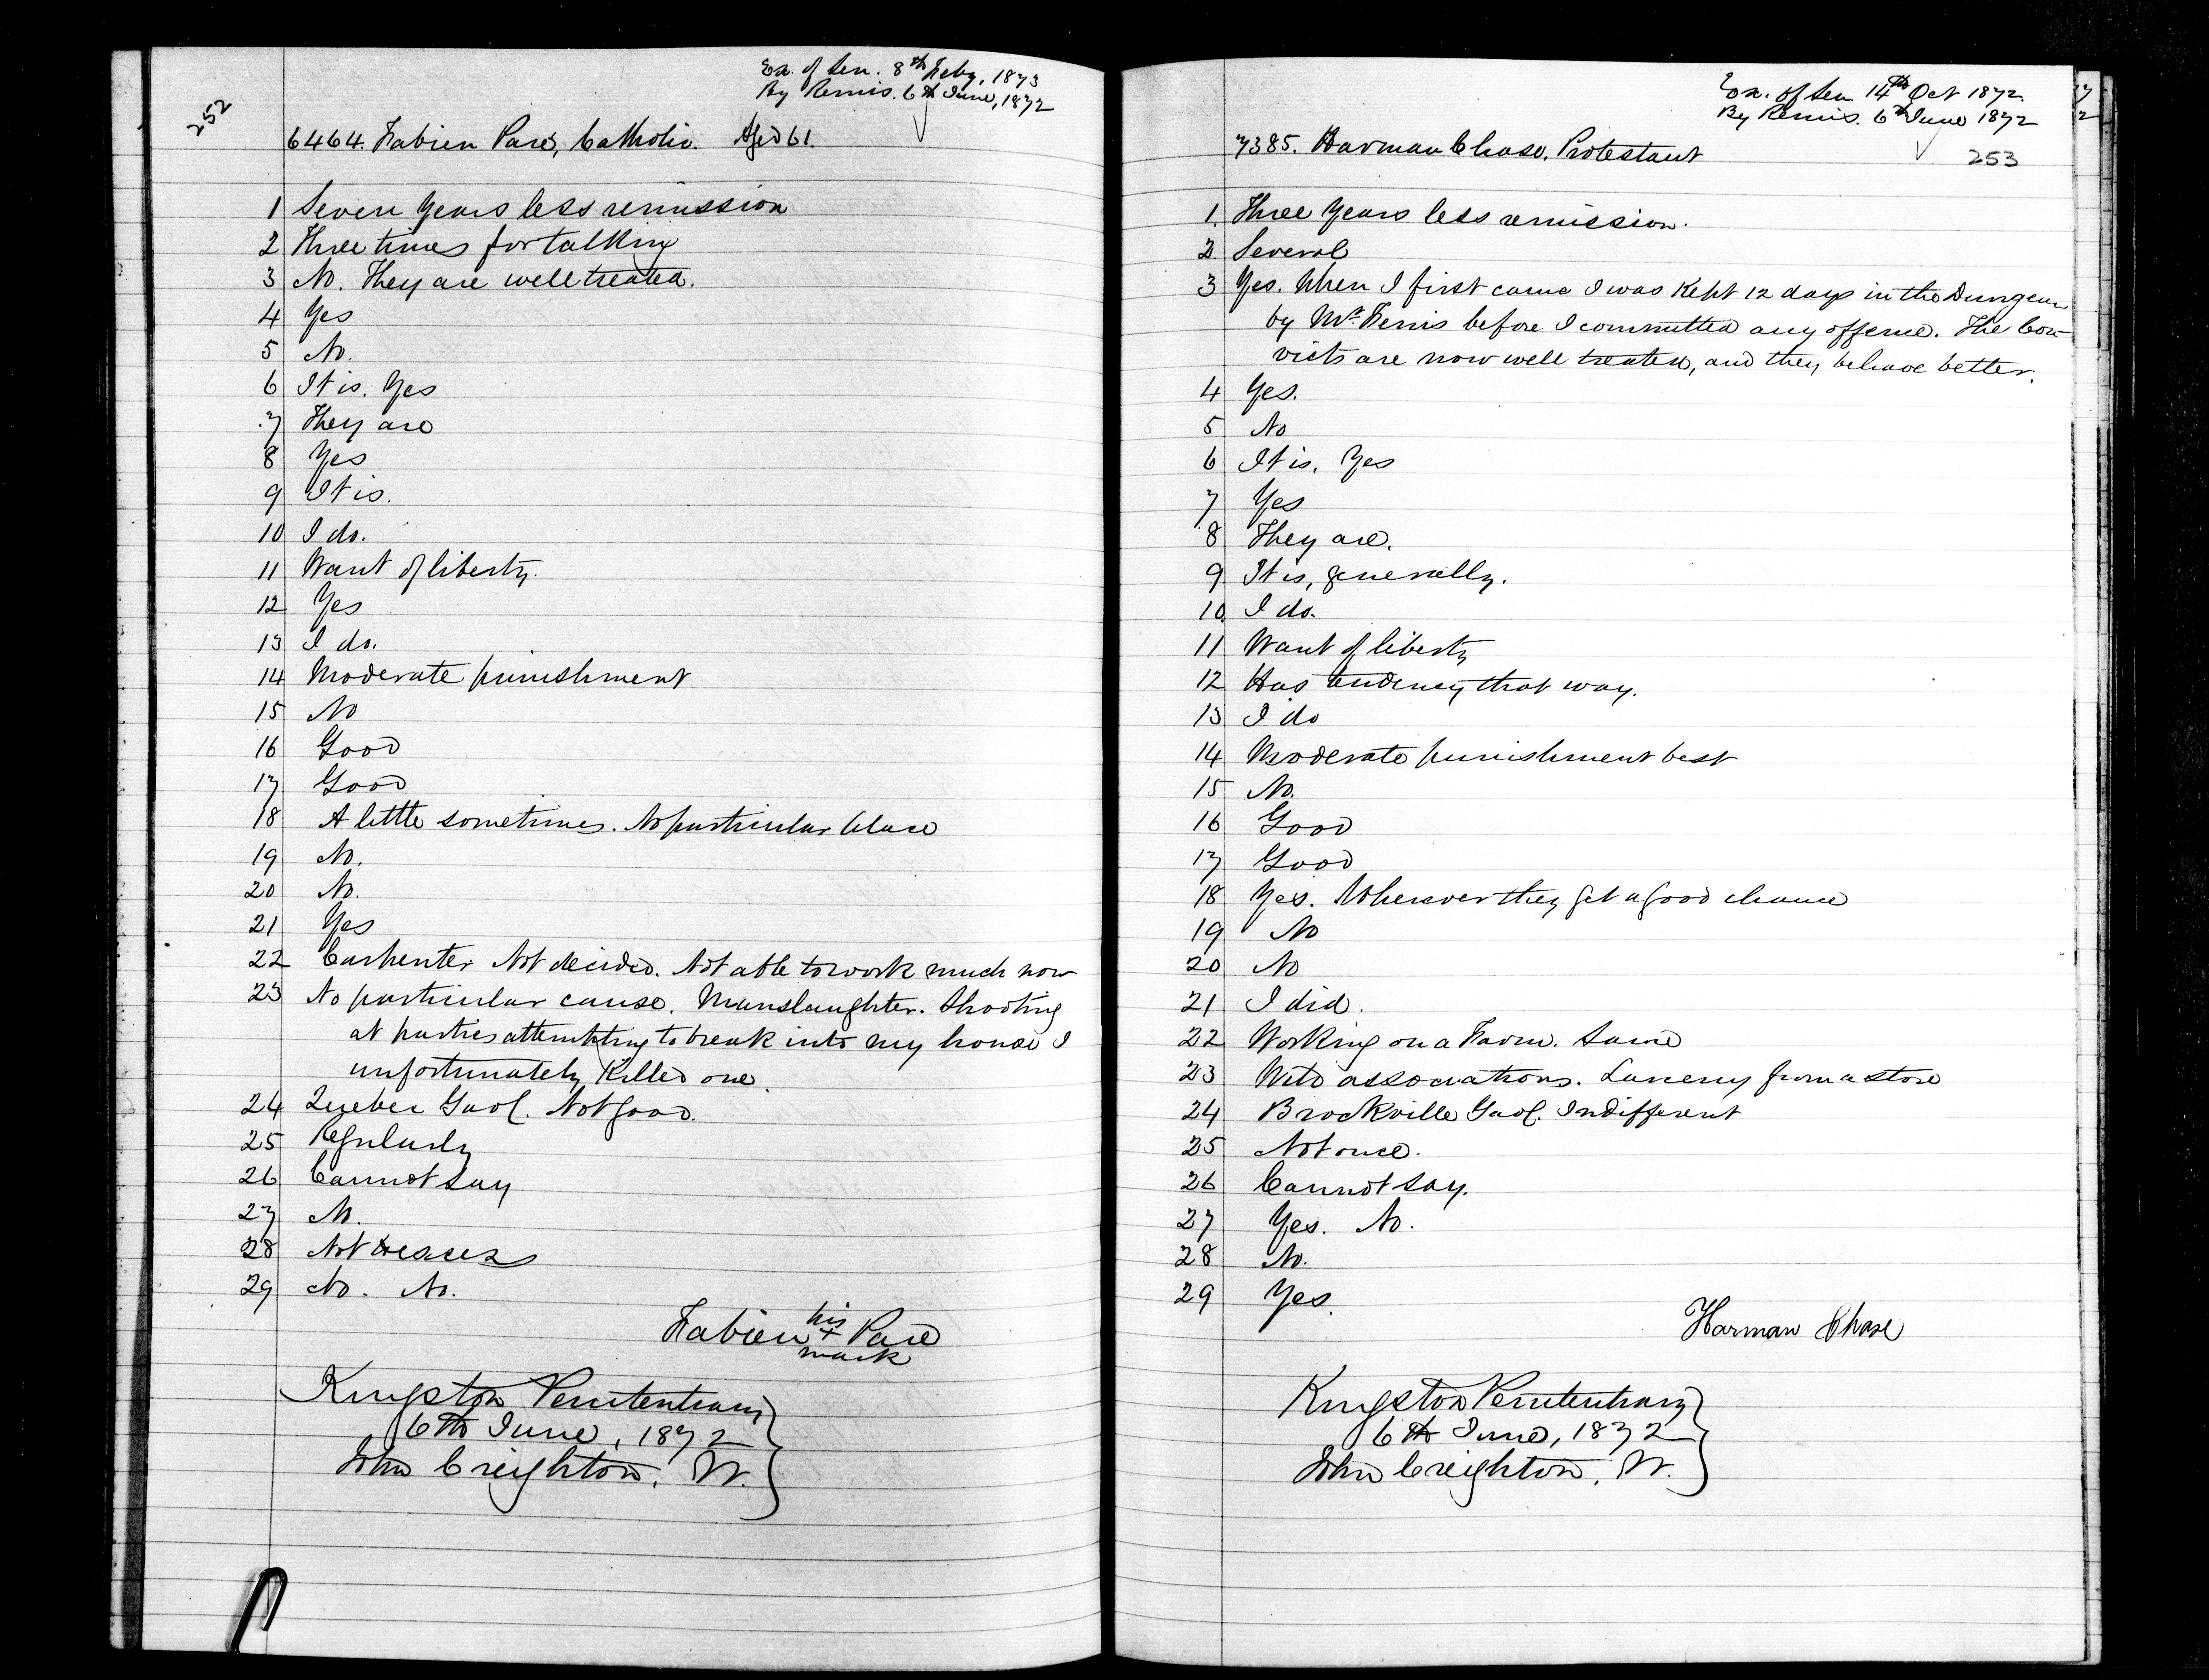 252
Ex. of Sen. 8th Feby. 1873
By Remis. 6th June, 1872
6464. Fabien Paré, Catholic. Aged 61.
1 Seven Years less remission
2 Three times for talking
3 No. They are well treated.
4 Yes
5 No.
6 It is. Yes
7 They are
8 Yes
9 It is.
10 I do.
11 Want of liberty.
12 Yes
13 I do.
14 Moderate punishment
15 No
16 Good
17 Good
18 A little sometimes. No particular place
19 No.
20 No.
21 Yes
22 Carpenter Not decided. Not able to work much now
23 No particular cause. Manslaughter. Shooting
at parties attempting to break into my house I
unfortunately Killed one.
24 Quebec Gaol. Not good.
25 Regularly
26 Cannot say
27 No.
28 Not
29 No. No.
his
Fabien + Pare
mark
Kingston Penitentiary
6th June, 1872
John Creighton, W.
Ex. of Sen. 14th Oct 1872.
By Remis. 6th June 1872
7385. Harman Chase. Protestant
253
1. Three Years less remission.
2. Several
3 Yes. When I first came I was Kept 12 days in the Dungeon
by Mr. Ferris before I committed any offence. The Con-
victs are now well treated, and they behave better.
4 Yes.
5 No
6 It is. Yes
7 Yes
8 They are.
9 It is, generally.
10. I do.
11 Want of liberty
12 Has tendency that way.
13 I do
14 Moderate punishment best
15 No.
16 Good
17 Good
18 Yes. Wherever they get a good chance
19 No
20 No
21 I did.
22 Working on a Farm. Same
23 Wild associations. Larceny from a store
24 Brockville Gaol. Indifferent
25 Not once.
26 Cannot say.
27 Yes. No.
28 No.
29 Yes.
Harman Chase
Kingston Penitentiary
6th June, 1872
John Creighton, W.